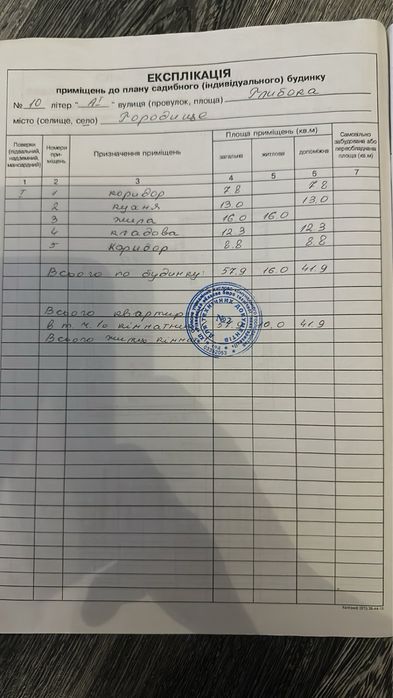 ЕКСПЛІКАЦІЯ
приміщень до плану садибного (індивідуального) будинку
№ 10 літер " АІ " вулиця (провулок, площа) Глибока
місто (селище, село) Городище
Поверхи (підвальний, надземний, мансардний) Номери приміщень Призначення приміщень Площа приміщень (кв.м) Самовільно забудована або переобладнана площа (кв.м)
загальна житлова допоміжна
1 2 3 4 5 6 7
І 1 коридор 7.8 7.8
2 кухня 13.0 13.0
3 жила 16.0 16.0
4 кладова 12.3 12.3
5 коридор 8.8 8.8
Всього по будинку: 57.9 16.0 41.9
Всього квартир
в т.ч. 1о кімнатних 41.9
Всього жилих кімнат